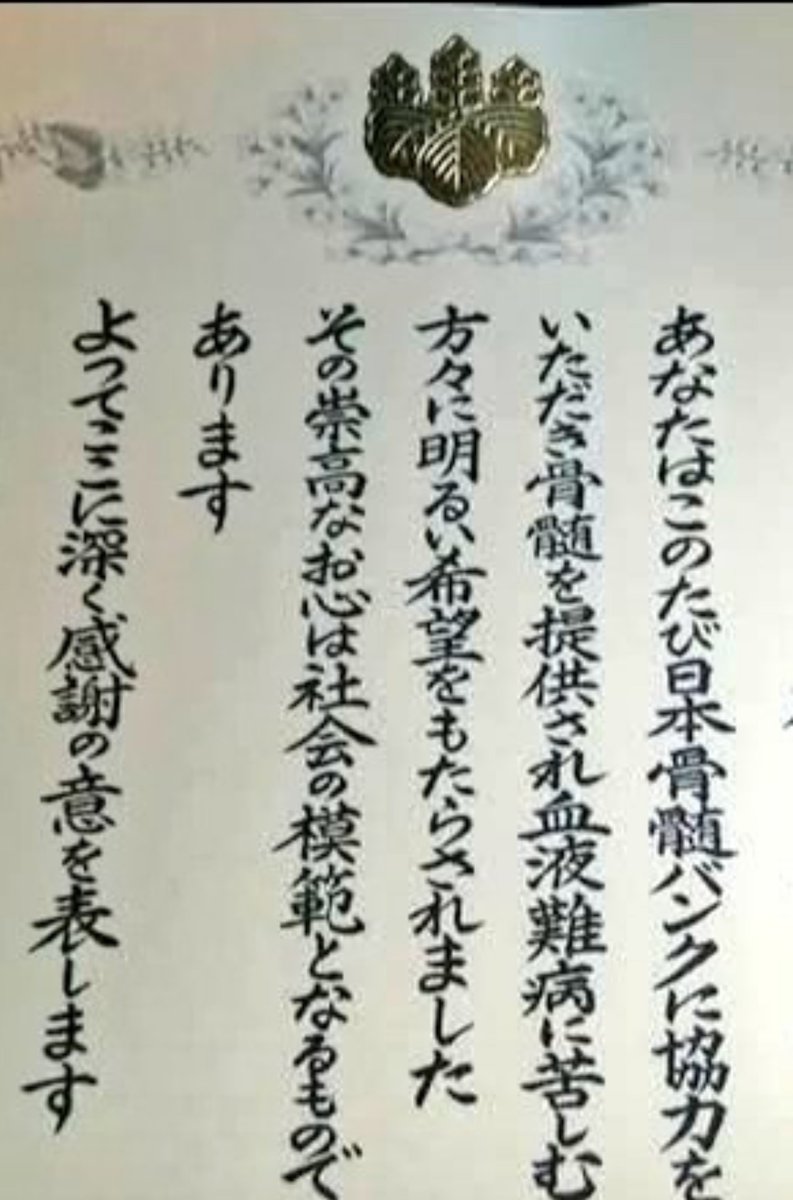 あなたはこのたび日本骨髄バンクに協力を
いただき骨髄を提供され血液難病に苦しむ
方々に明るい希望をもたらされました
その崇高なお心は社会の模範となるもので
あります
よってここに深く感謝の意を表します